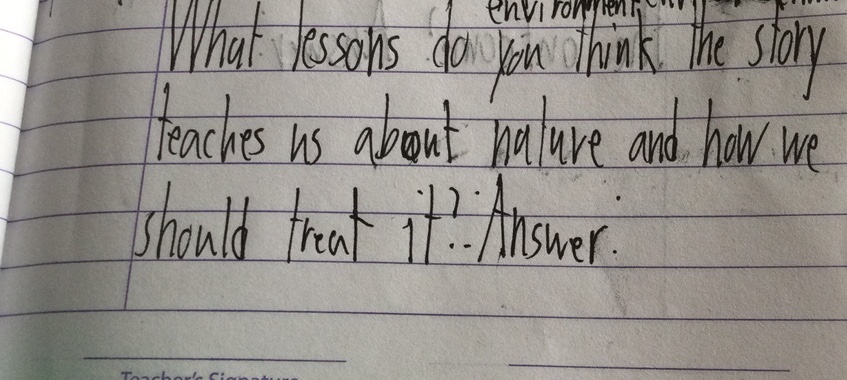 environment
What lessons do you think the story
teaches us about nature and how we
should treat it? Answer.
Teacher's Signature